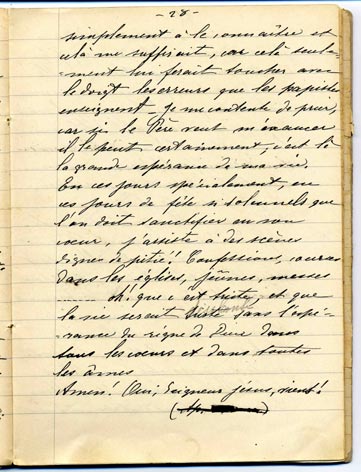 - 28 -
simplement à le connaître et
celà me suffirait, car celà seule-
ment lui ferait toucher avec
le doigt les erreurs que les papistes
enseignent - Je me contente de prier,
car si le Père veut m'exaucer
il le peut certainement, c'est là
la grande espérance de ma vie.
En ces jours spécialement, en
ces jours de fête si solennels que
l'on doit sanctifier en son
cœur, j'assiste à des scènes
dignes de pitié! Confessions,
dans les églises, jeûnes, messes
oh! que c'est triste et que
la vie serait triste sans l'espé-
rance du règne de Dieu dans
tous les cœurs et dans toutes
les âmes
Amen! Oui, Seigneur Jésus, vient!